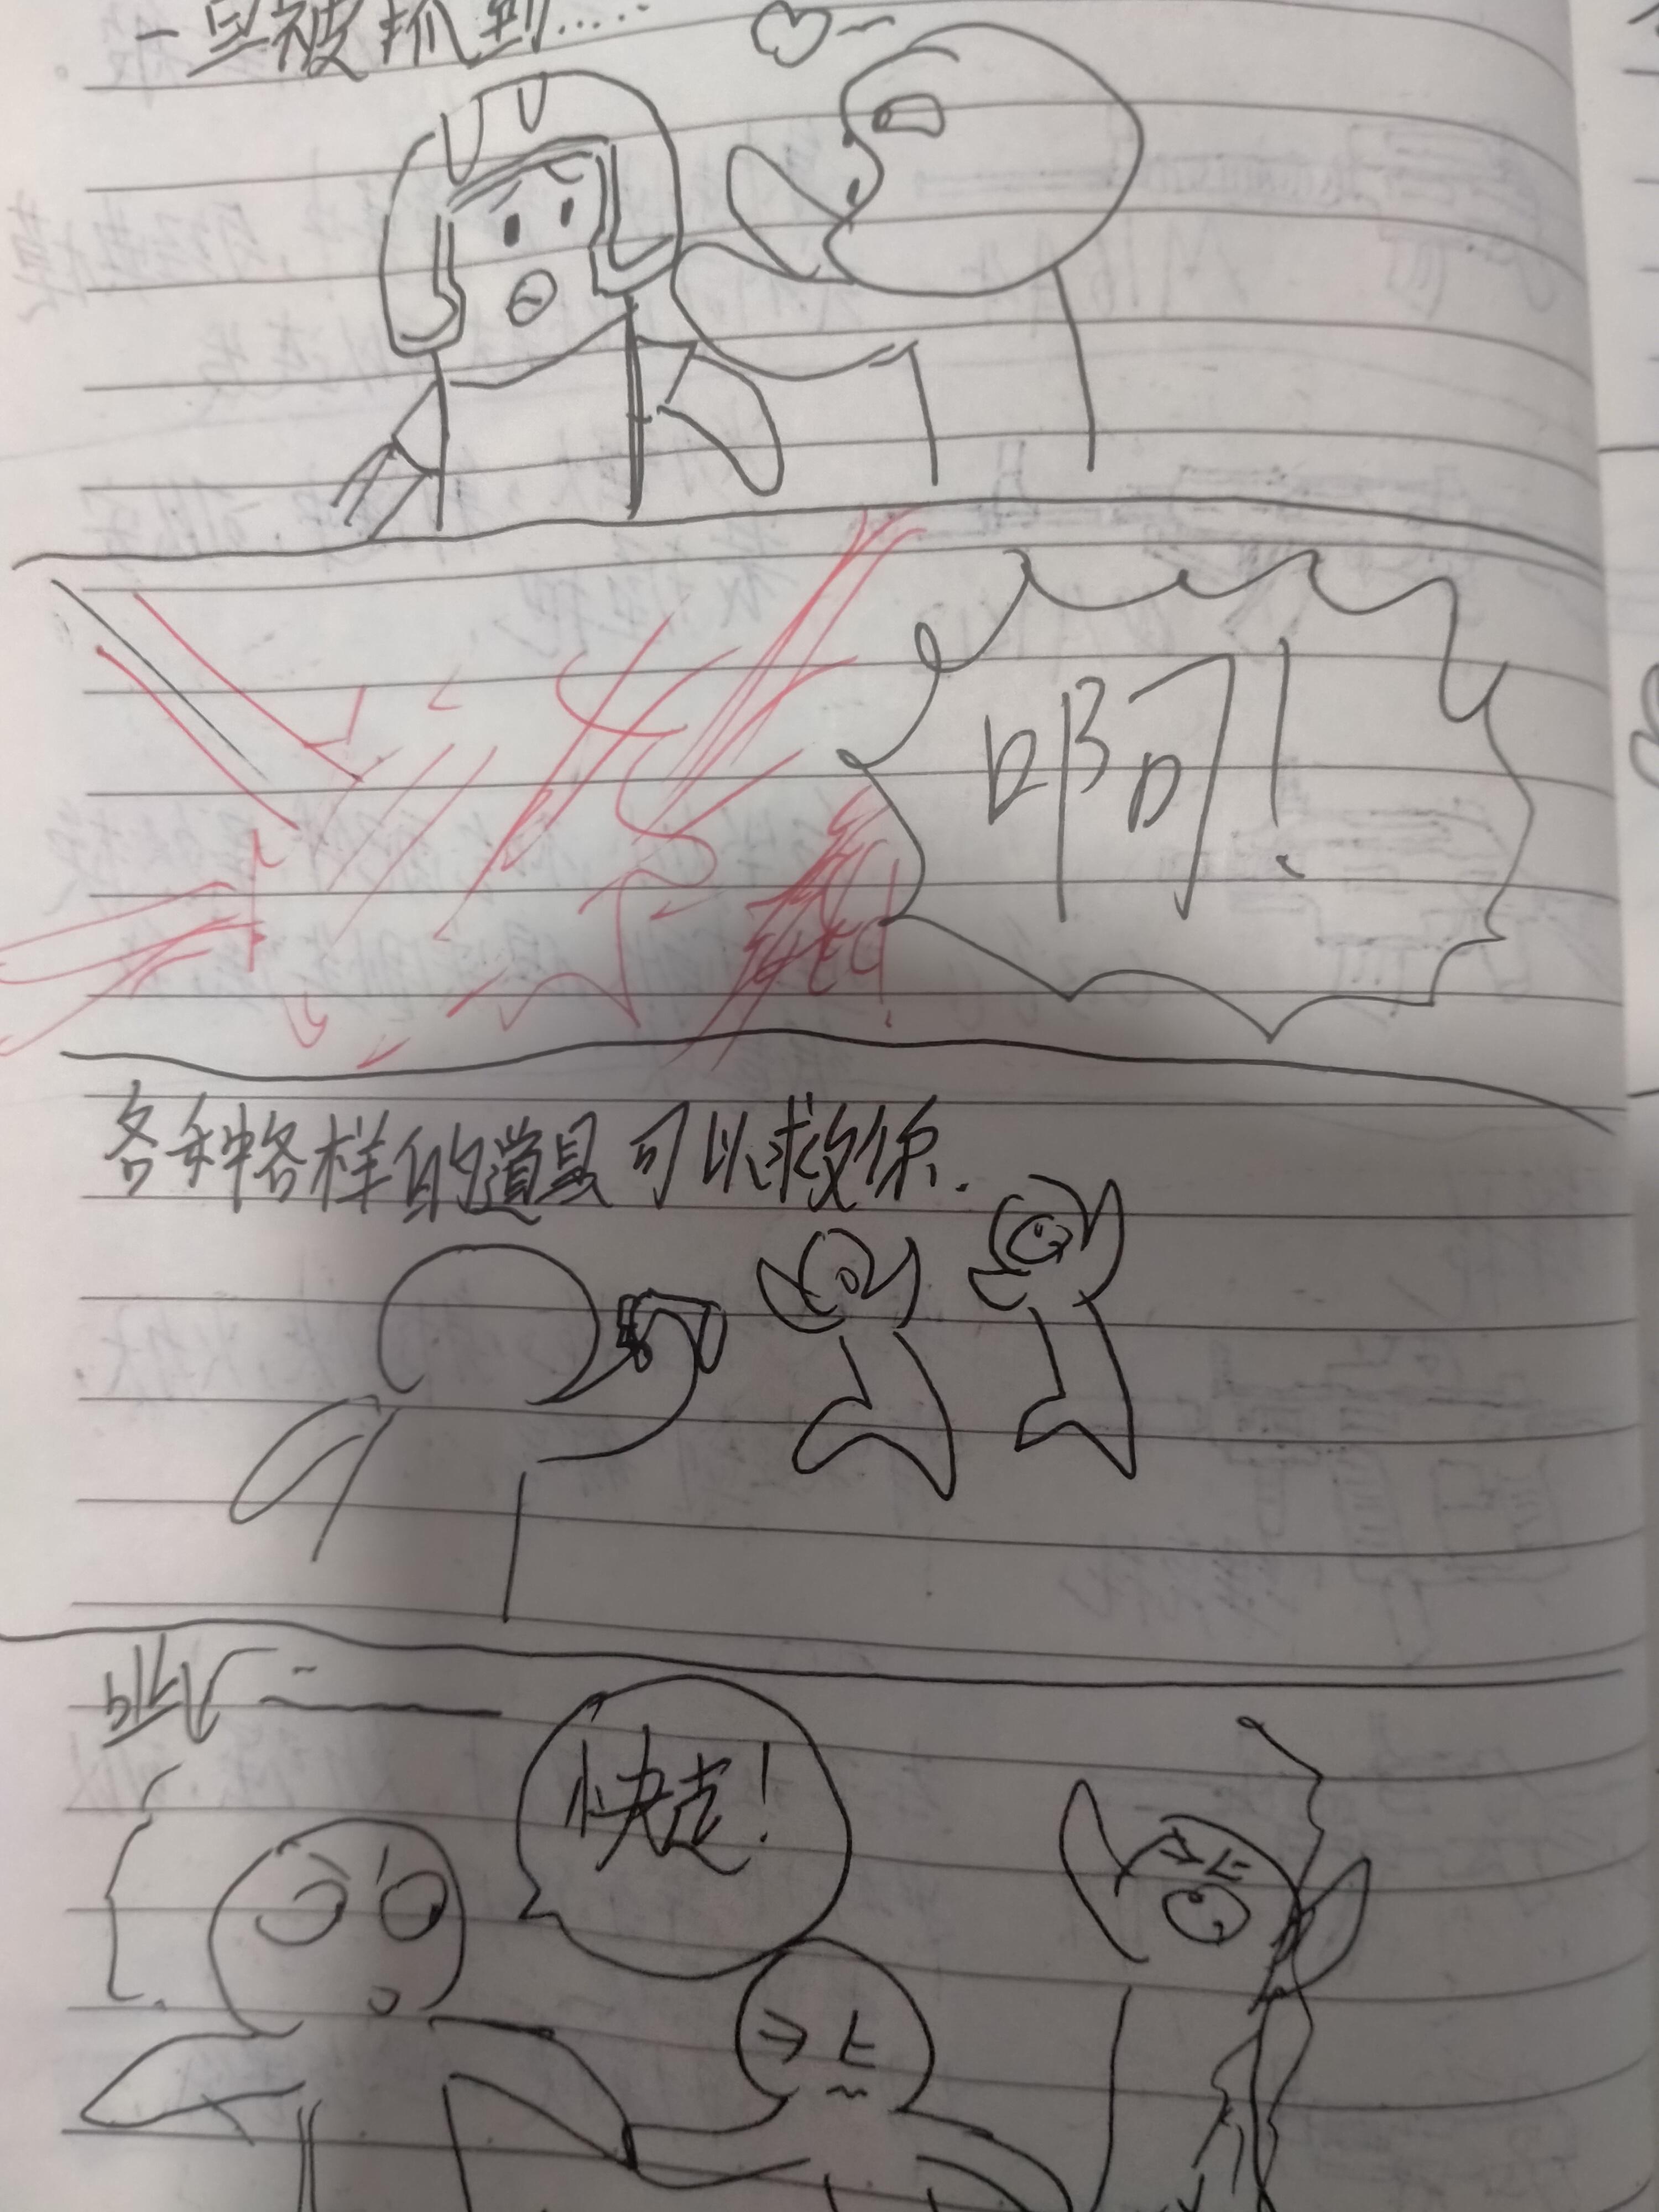 一旦被抓到……
啊！
各种各样的道具可以救你.
呲
快走！